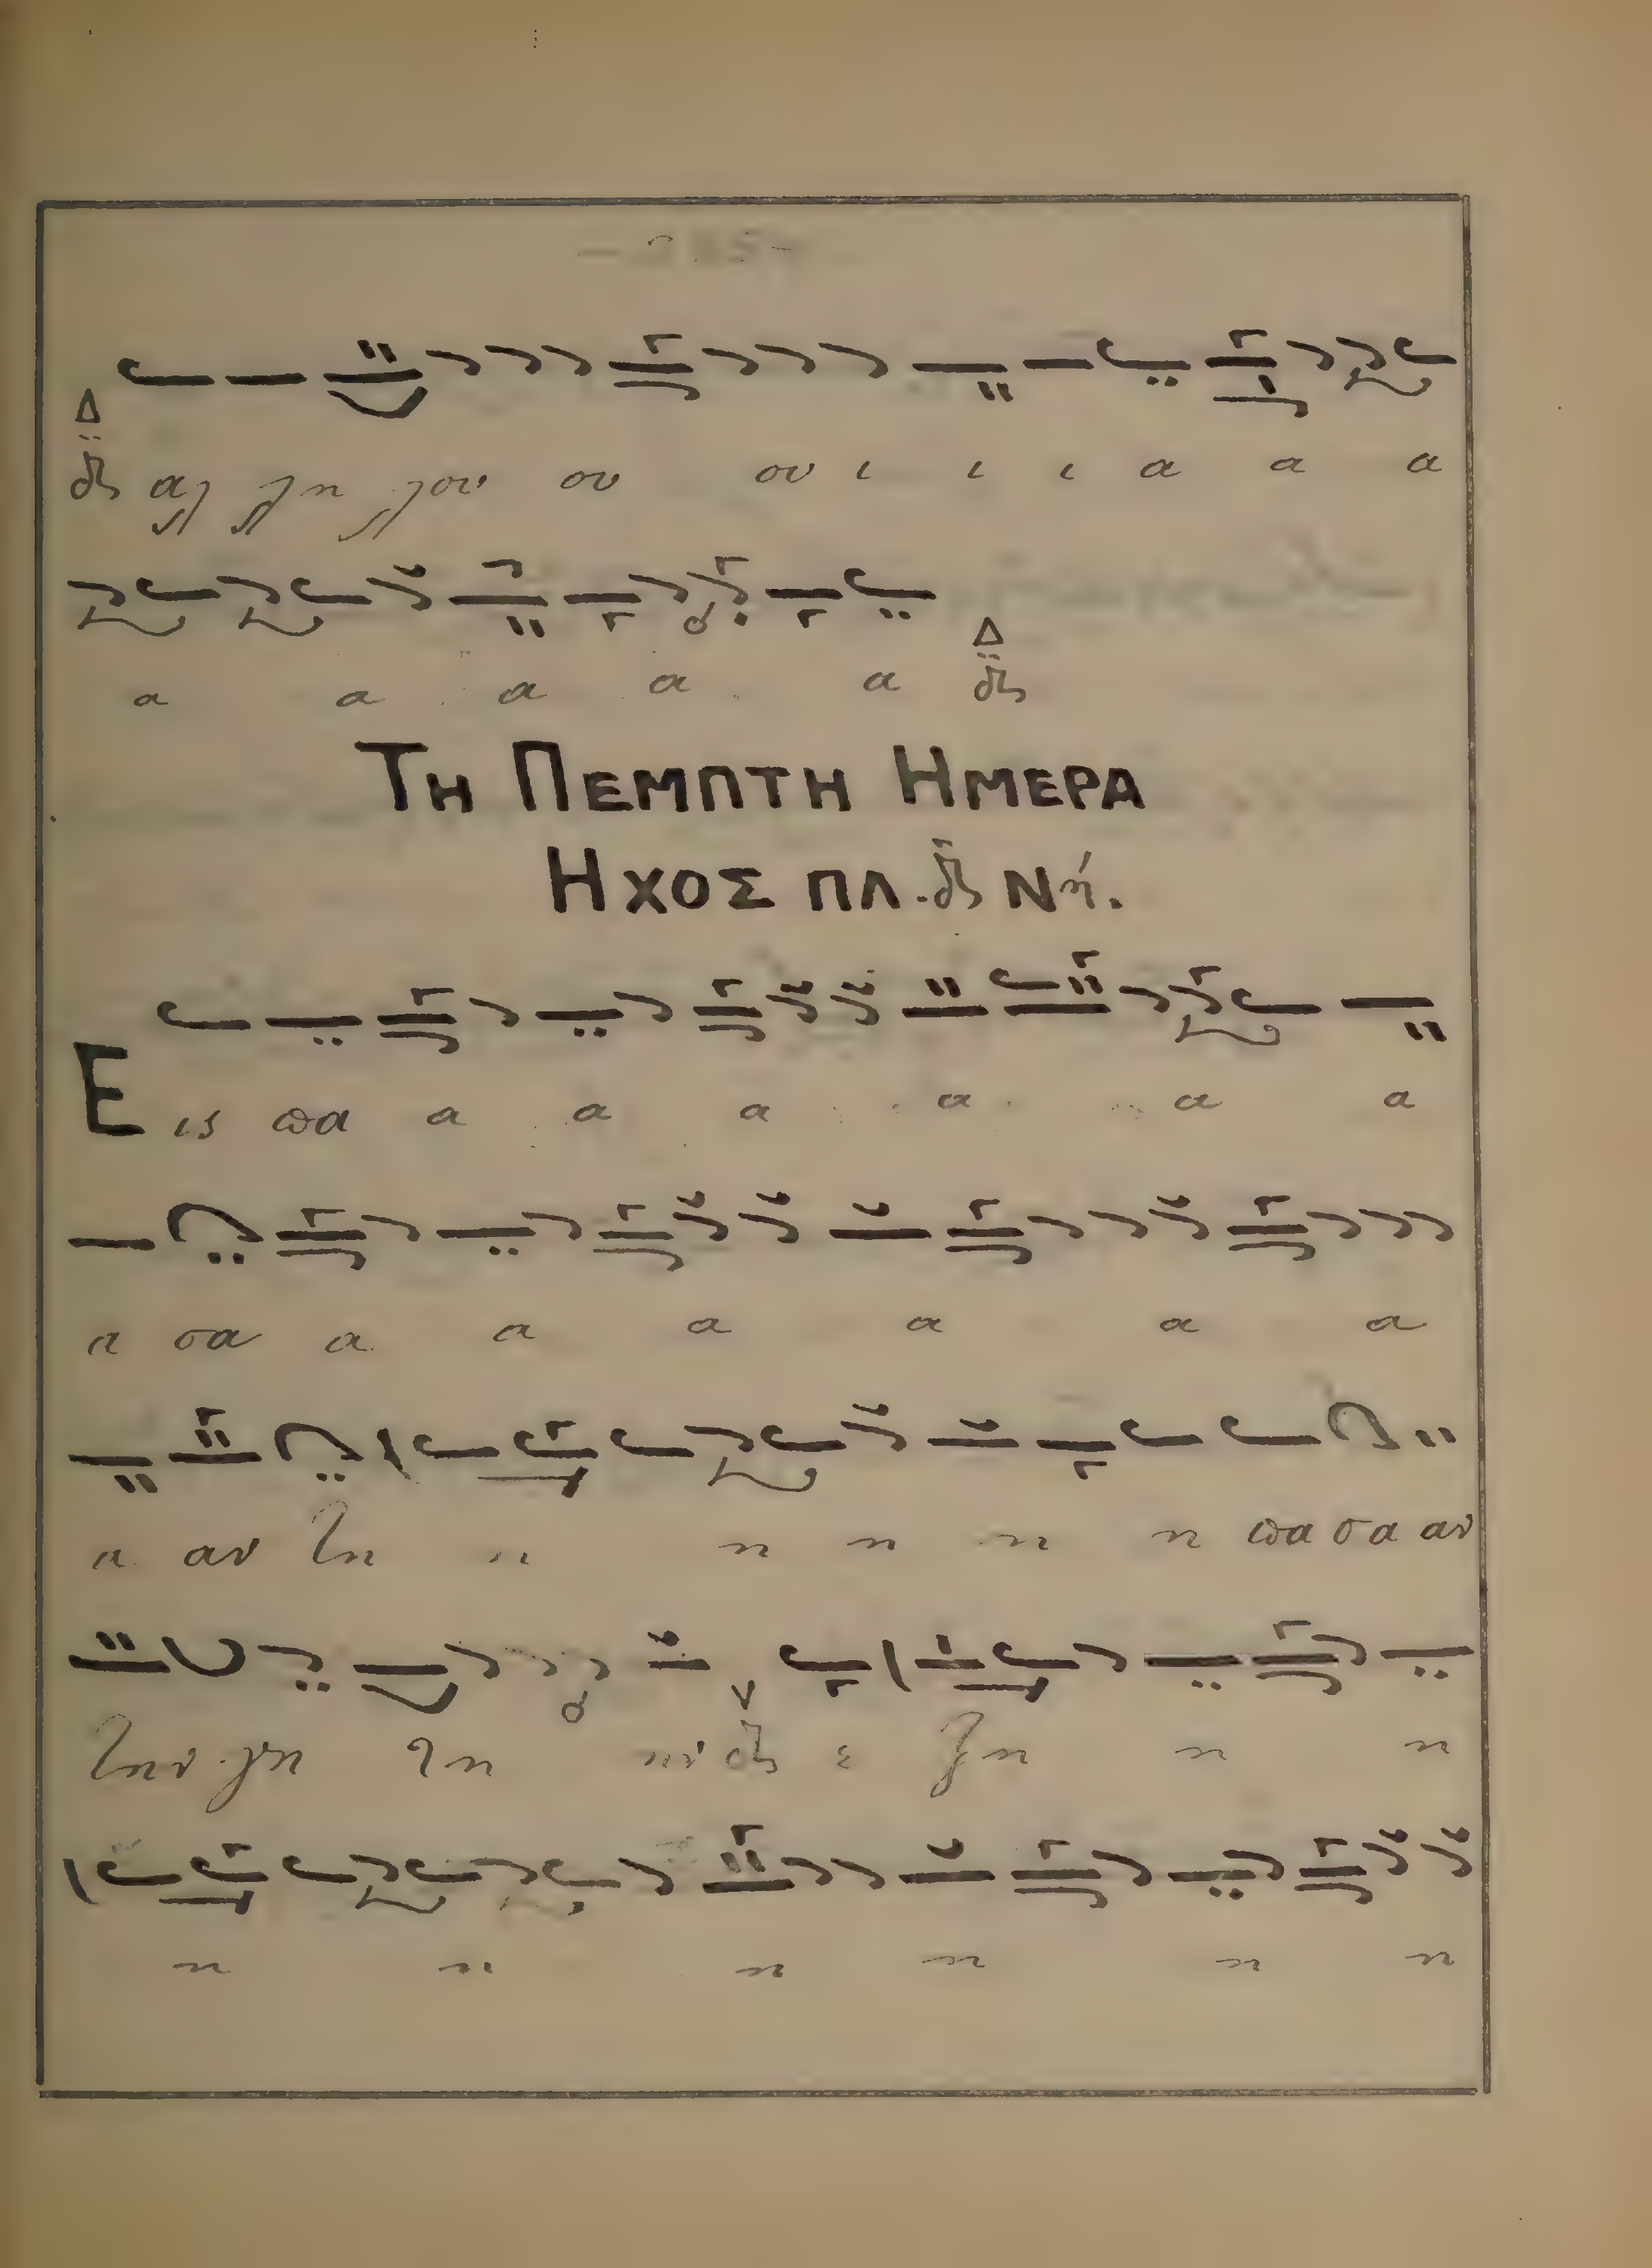 Δ
δ αλ λη λου ου ου ι ι ι α α α
α α α α α Δ δ
ΤΗ ΠΕΜΠΤΗ ΗΜΕΡΑ
ΗΧΟΣ ΠΛ. δ Νή.
Εις πα α α α α α α
α σα α α α α α α
α αν τη η η η η η πα σα αν
την γη τη ην δ ε ξη η η
η η η η η η